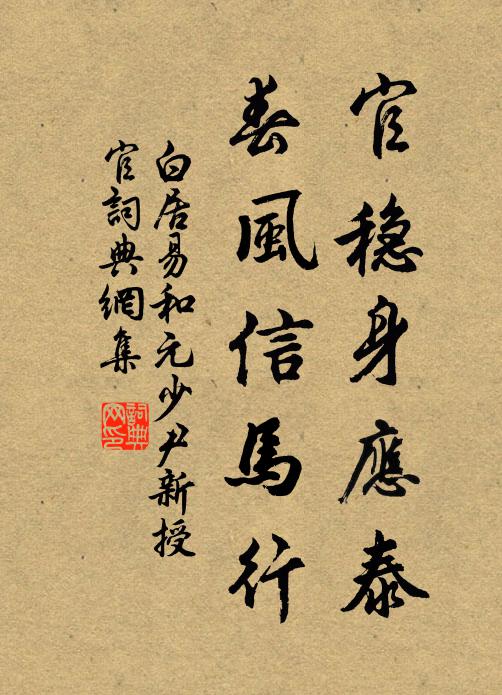 官穩身應泰
春風信馬行
白居易和元少尹新授
官詞典網集
詞典
网印